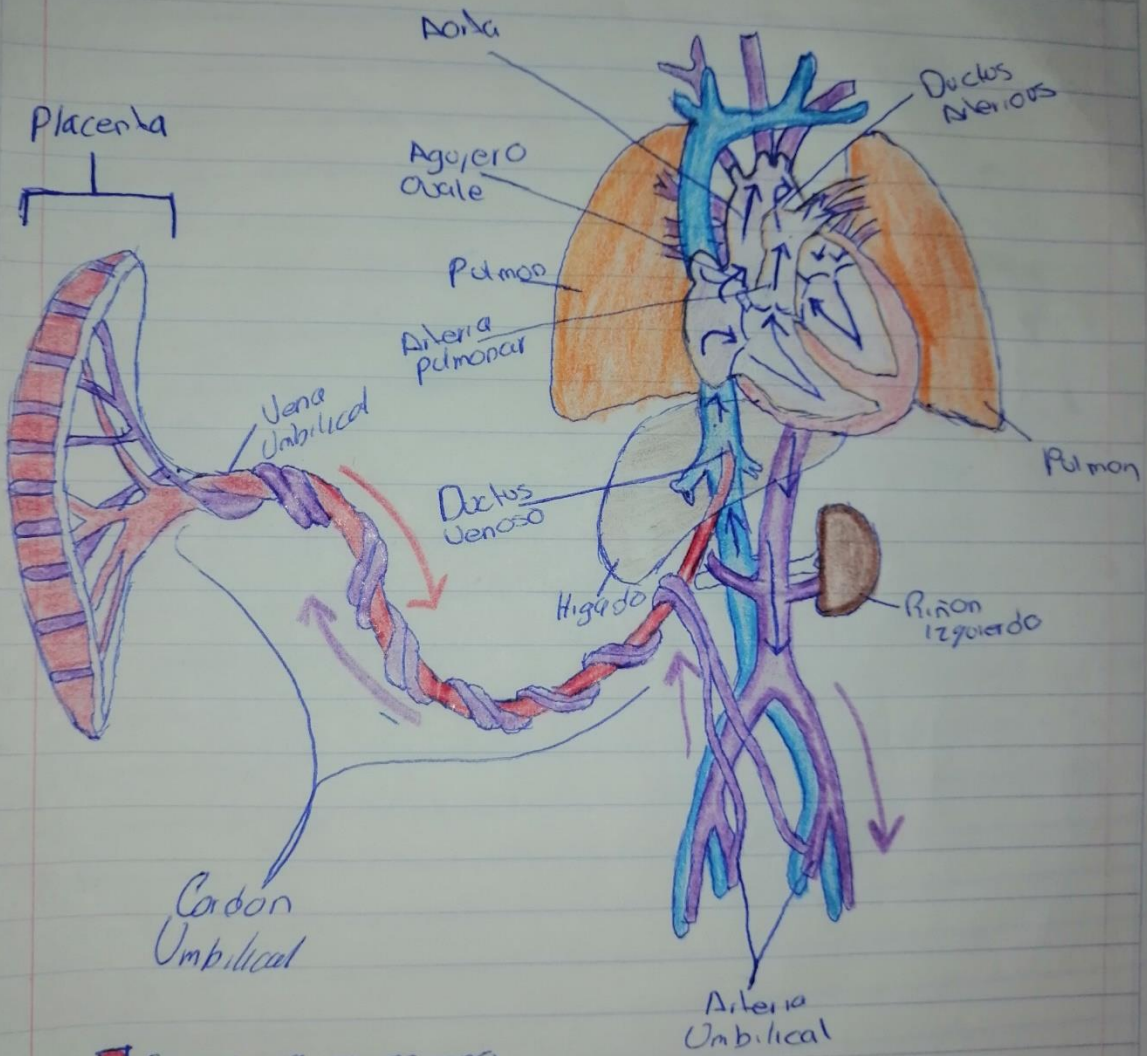 Aorta
Ductus
Arteriovs
Placenta
Agujero
ovale
Pulmon
Arteria
pulmonar
Vena
Umbilical
Pulmon
Ductus
venoso
Higado
Riñon
Izquierdo
Cordon
Umbilical
Arteria
Umbilical